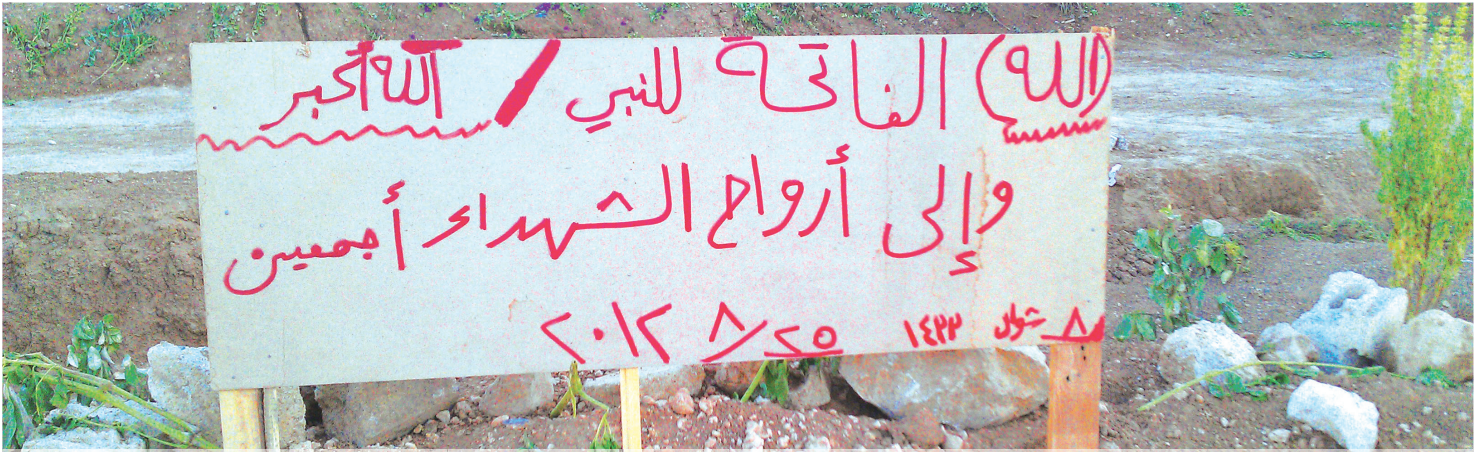 (الله) الفاتحة للنبي / الله أكبر
وإلى أرواح الشهداء أجمعين
٨ شوال ١٤٣٣ ٢٥/٨ ٢٠١٢